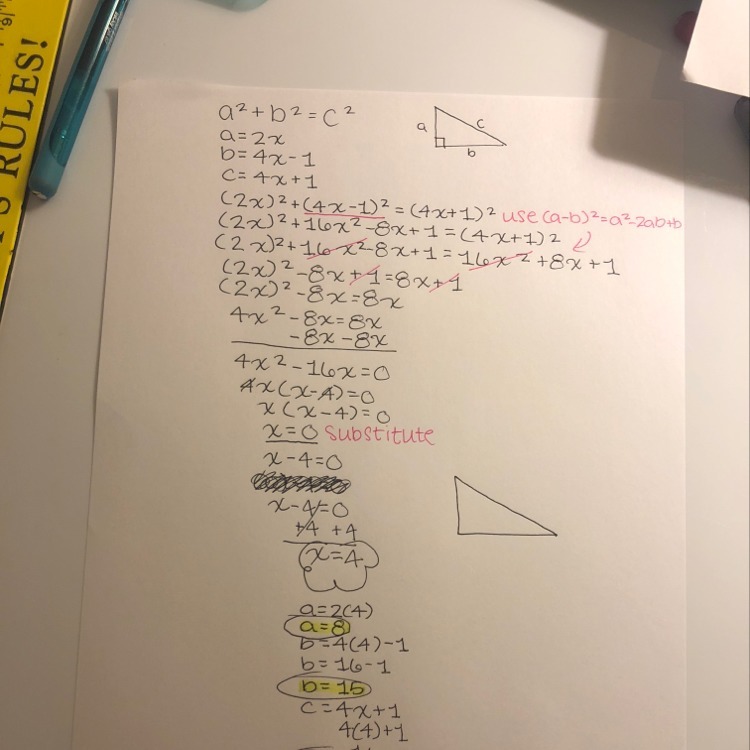 RULES!
a² + b² = c²
a = 2x
b = 4x - 1
c = 4x + 1
a
c
b
(2x)² + (4x-1)² = (4x+1)² use (a-b)² = a²-2ab+b
(2x)² + 16x² - 8x + 1 = (4x+1)²
(2x)² + 16x² - 8x + 1 = 16x² + 8x + 1
(2x)² - 8x + 1 = 8x + 1
(2x)² - 8x = 8x
4x² - 8x = 8x
- 8x - 8x
4x² - 16x = 0
4x(x-4) = 0
x(x-4) = 0
x = 0 Substitute
x - 4 = 0
x - 4 = 0
+4 +4
x = 4
a = 2(4)
a = 8
b = 4(4) - 1
b = 16 - 1
b = 15
c = 4x + 1
4(4) + 1